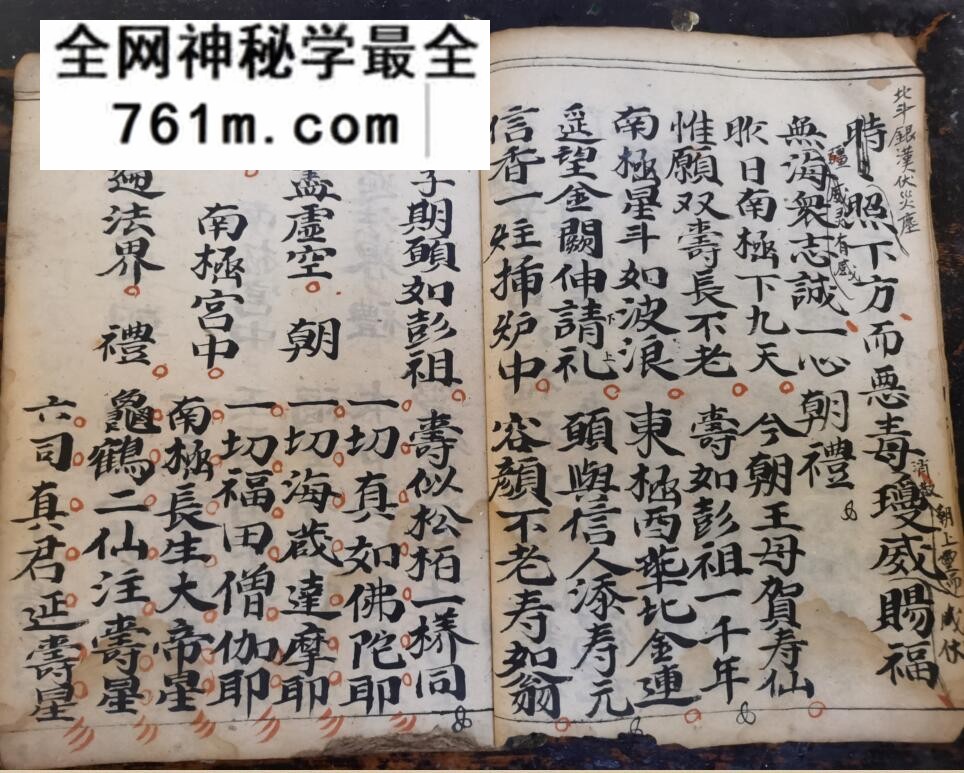 全网神秘学最全
761m.com
北斗銀漢伏災塵
時照下方而惡毒瓊威賜福
無海衆志誠一心朝禮
昨日南極下九天
今朝王母賀寿仙
惟願双壽長不老
壽如彭祖一千年
南極星斗如波浪
東極西華比金蓮
遥望金闕伸請礼
下
上
頭與信人添寿元
信香一炷揷炉中
容顏不老寿如翁
期頤如彭祖
壽似松栢一樣同
一切真如佛陀耶
盡虛空 朝
一切海藏達摩耶
南極宮中
一切福田僧伽耶
南極長生大帝星
遍法界 禮
龜鶴二仙注壽星
六司真君延壽星